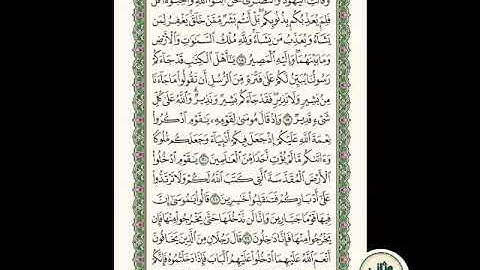 وَقَالَتِ ٱلْيَهُودُ وَٱلنَّصَٰرَىٰ نَحْنُ أَبْنَٰٓؤُا۟ ٱللَّهِ وَأَحِبَّٰٓؤُهُۥ قُلْ
فَلِمَ يُعَذِّبُكُم بِذُنُوبِكُم بَلْ أَنتُم بَشَرٌ مِّمَّنْ خَلَقَ يَغْفِرُ لِمَن
يَشَآءُ وَيُعَذِّبُ مَن يَشَآءُ وَلِلَّهِ مُلْكُ ٱلسَّمَٰوَٰتِ وَٱلْأَرْضِ
وَمَا بَيْنَهُمَا وَإِلَيْهِ ٱلْمَصِيرُ ١٨ يَٰٓأَهْلَ ٱلْكِتَٰبِ قَدْ جَآءَكُمْ
رَسُولُنَا يُبَيِّنُ لَكُمْ عَلَىٰ فَتْرَةٍ مِّنَ ٱلرُّسُلِ أَن تَقُولُوا۟ مَا جَآءَنَا
مِنۢ بَشِيرٍ وَلَا نَذِيرٍ فَقَدْ جَآءَكُم بَشِيرٌ وَنَذِيرٌ وَٱللَّهُ عَلَىٰ كُلِّ
شَىْءٍ قَدِيرٌ ١٩ وَإِذْ قَالَ مُوسَىٰ لِقَوْمِهِۦ يَٰقَوْمِ ٱذْكُرُوا۟
نِعْمَةَ ٱللَّهِ عَلَيْكُمْ إِذْ جَعَلَ فِيكُمْ أَنۢبِيَآءَ وَجَعَلَكُم مُّلُوكًا
وَءَاتَىٰكُم مَّا لَمْ يُؤْتِ أَحَدًا مِّنَ ٱلْعَٰلَمِينَ ٢٠ يَٰقَوْمِ ٱدْخُلُوا۟
ٱلْأَرْضَ ٱلْمُقَدَّسَةَ ٱلَّتِى كَتَبَ ٱللَّهُ لَكُمْ وَلَا تَرْتَدُّوا۟
عَلَىٰٓ أَدْبَارِكُمْ فَتَنقَلِبُوا۟ خَٰسِرِينَ ٢١ قَالُوا۟ يَٰمُوسَىٰٓ إِنَّ
فِيهَا قَوْمًا جَبَّارِينَ وَإِنَّا لَن نَّدْخُلَهَا حَتَّىٰ يَخْرُجُوا۟ مِنْهَا فَإِن
يَخْرُجُوا۟ مِنْهَا فَإِنَّا دَٰخِلُونَ ٢٢ قَالَ رَجُلَانِ مِنَ ٱلَّذِينَ يَخَافُونَ
أَنْعَمَ ٱللَّهُ عَلَيْهِمَا ٱدْخُلُوا۟ عَلَيْهِمُ ٱلْبَابَ فَإِذَا دَخَلْتُمُوهُ فَإِنَّكُمْ